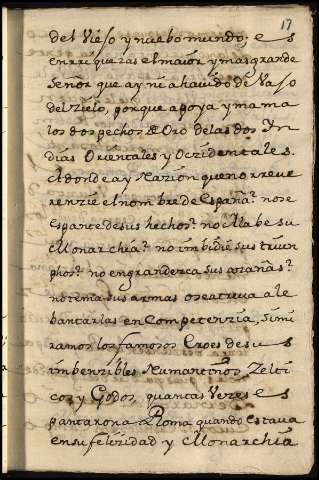 17
del Viejo y nuebo mundo; es
en rriquezas el maior y mas grande
Señor que ay ni a havido de vaso
del zielo, porque apoya y mama
los dos pechos de Oro de las dos Yn
dias Orientales y Oczidentales.
Adonde ay Nazión que no rreve
renzie el nombre de España? no se
espante de sus hechos? no Alabe su
Monarchia? no imbidie sus triun
phos? no engrandezca sus azañas?
no tema sus armas o se atreva a le
bantarlas en Competenzia, si mi
ramos los famosos Eroes de sus
imbenzibles Numantinos, Zelti
cos, y Godos, quantas Vezes es
pantaron a Roma quando estava
en su felizidad y Monarchia